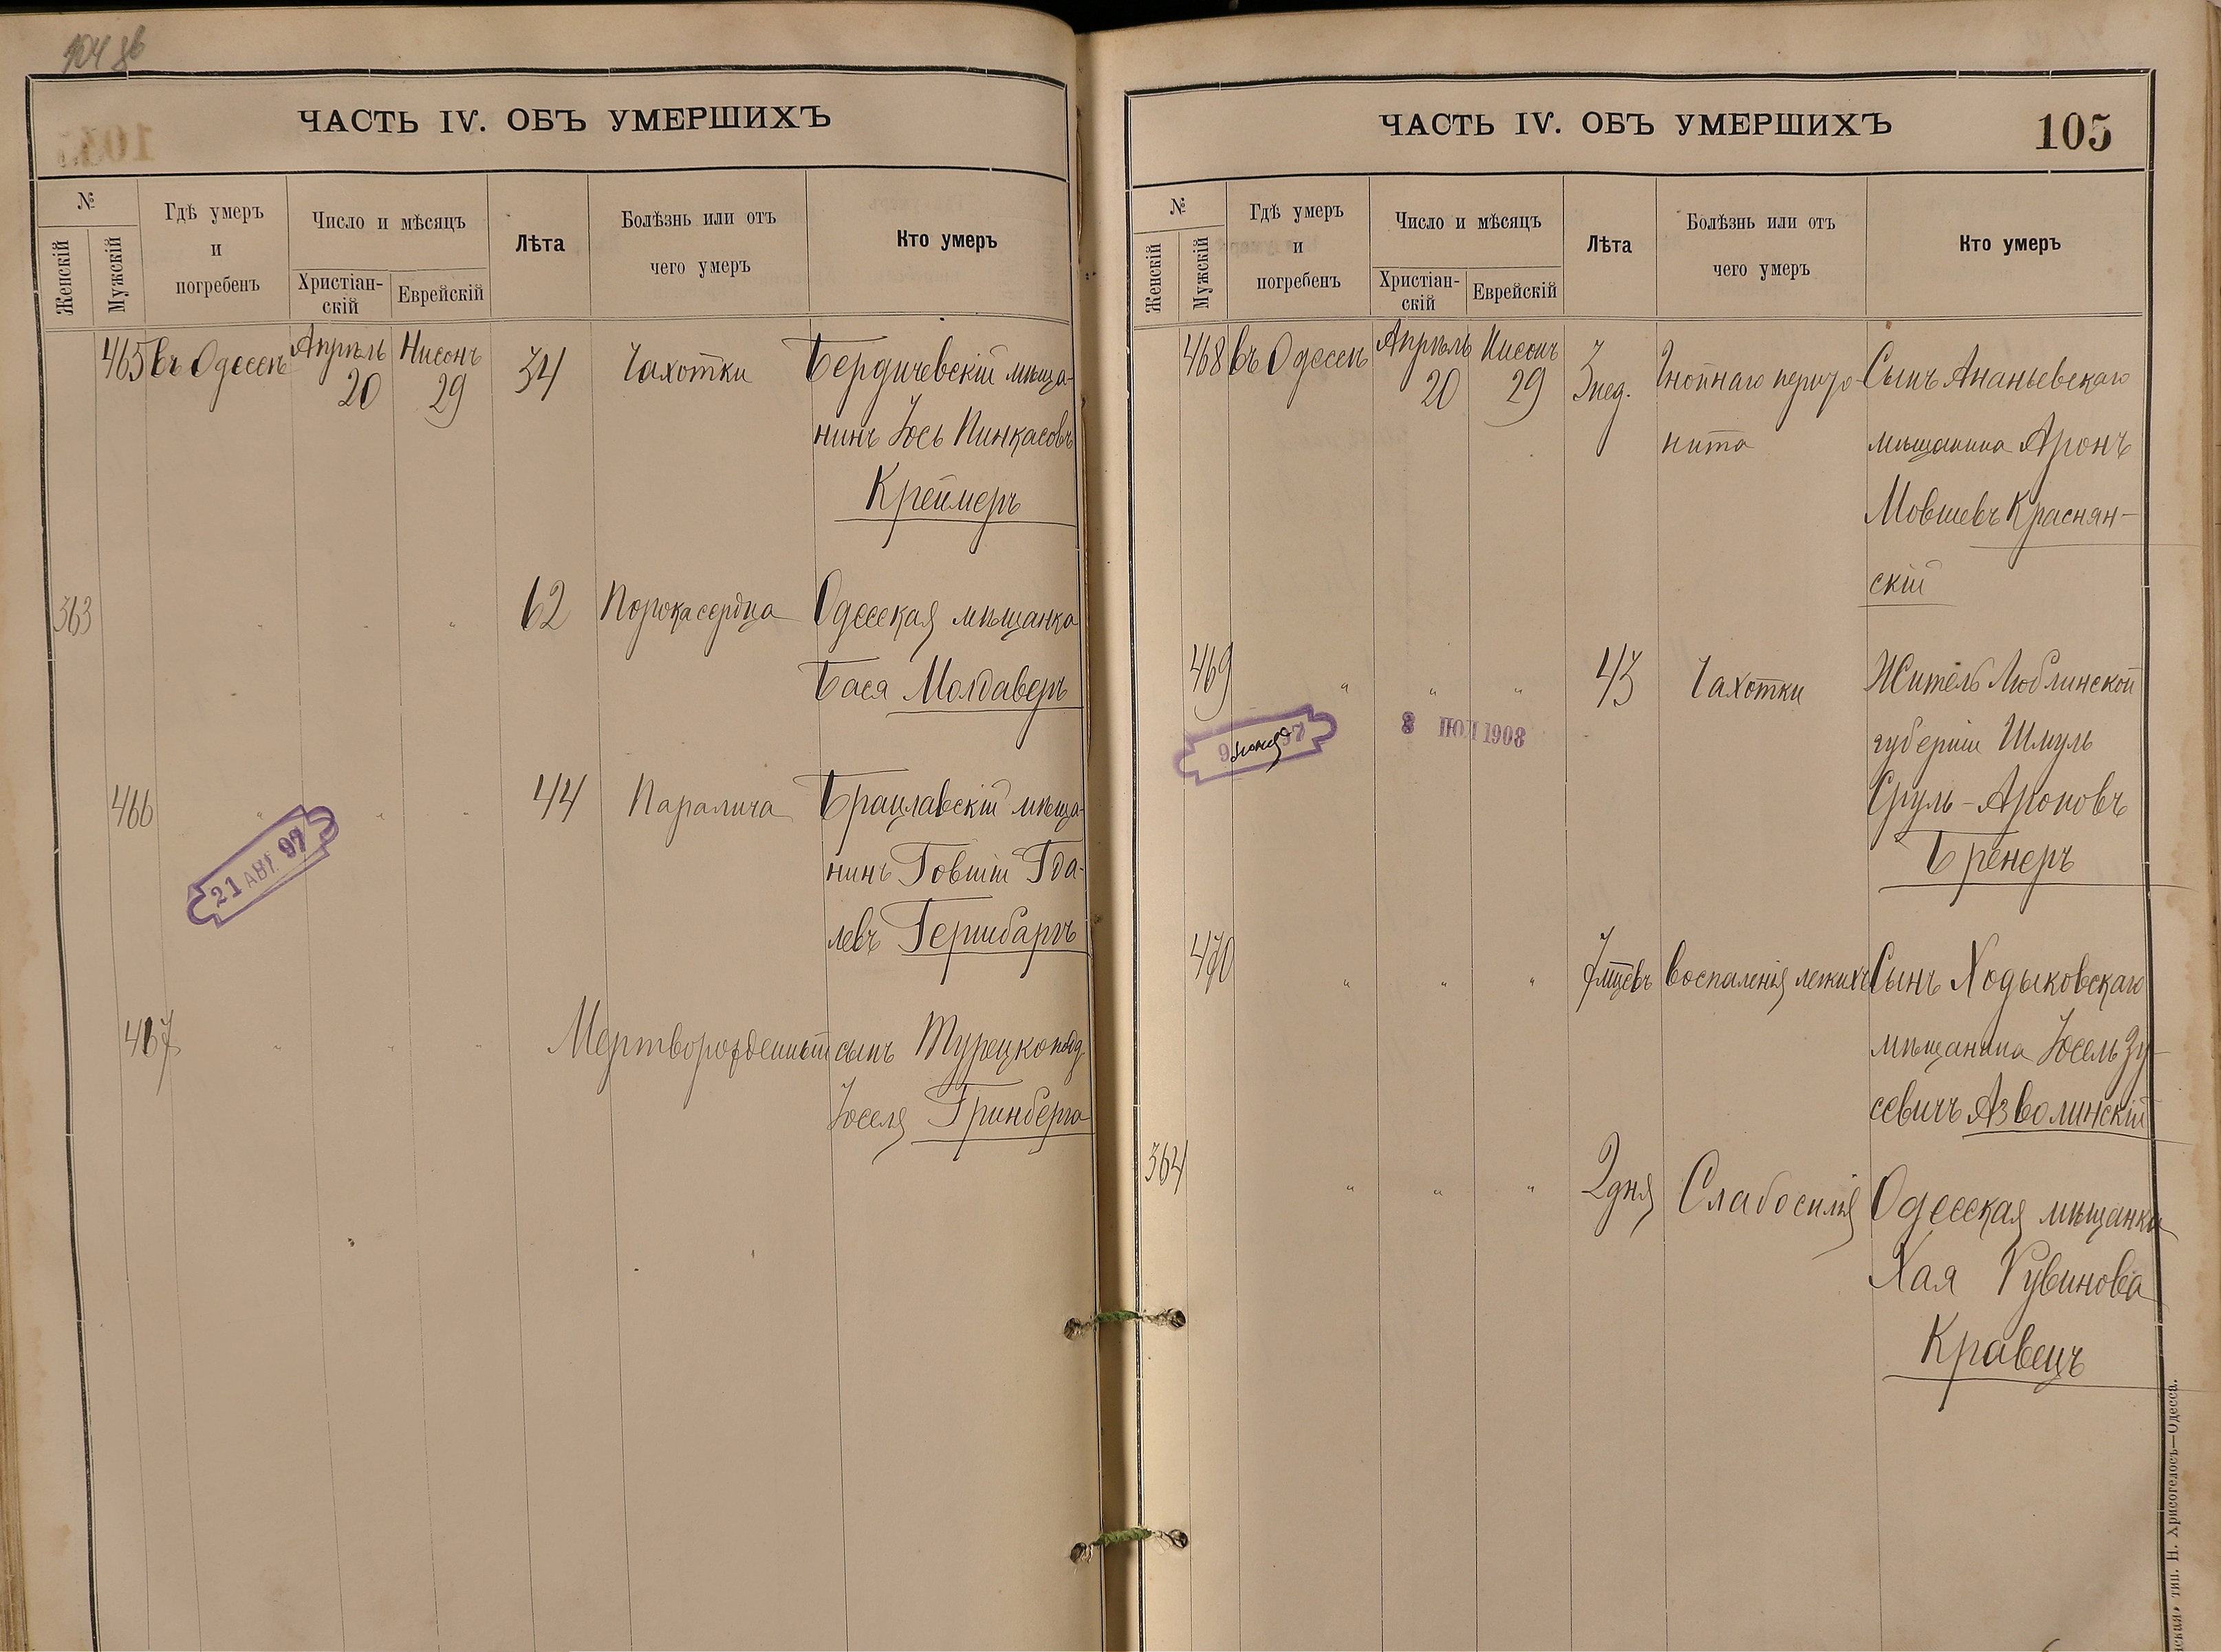 104 об
ЧАСТЬ IV. ОБЪ УМЕРШИХЪ
№
Женскій
Мужскій
Гдѣ умеръ
и
погребенъ
Число и мѣсяцъ
Христіан-
скій
Еврейскій
Лѣта
Болѣзнь или отъ
чего умеръ
Кто умеръ
465 въ Одессѣ Апрѣль 20 Нисонъ 29 34 Чахотки Бердичевскій мѣща-
нинъ Іось Пинкасовъ
Креймеръ
363 " " " 62 Порока сердца Одесская мѣщанка
Бася Молдаверъ
466 " " " 44 Паралича Брацлавскій мѣща-
нинъ Говшій Гда-
левъ Гершбаргъ
21 АВГ. 97
467 " " " Мертворожденный сынъ Турецкопод.
Іоселя Гринберга
ЧАСТЬ IV. ОБЪ УМЕРШИХЪ
105
№
Женскій
Мужскій
Гдѣ умеръ
и
погребенъ
Число и мѣсяцъ
Христіан-
скій
Еврейскій
Лѣта
Болѣзнь или отъ
чего умеръ
Кто умеръ
468 въ Одессѣ Апрѣль 20 Нисонъ 29 3 нед. Гнойнаго перито- Сынъ Ананьевскаго
нита мѣщанина Аронъ
Мовшевъ Краснян-
скій
469 " " " 43 Чахотки Житель Люблинской
губерніи Шмуль
8 ІЮЛ 1908
Сруль-Ароновъ
Бренеръ
470 " " " 7 мцевъ воспаленія легкихъ Сынъ Ходыковскаго
мѣщанина Іосель Зу-
севичъ Азволинскій
364 " " " 2 дня Слабосилія Одесская мѣщанка
Хая Рувинова
Кравецъ
тип. Н. Хрисогелосъ—Одесса.